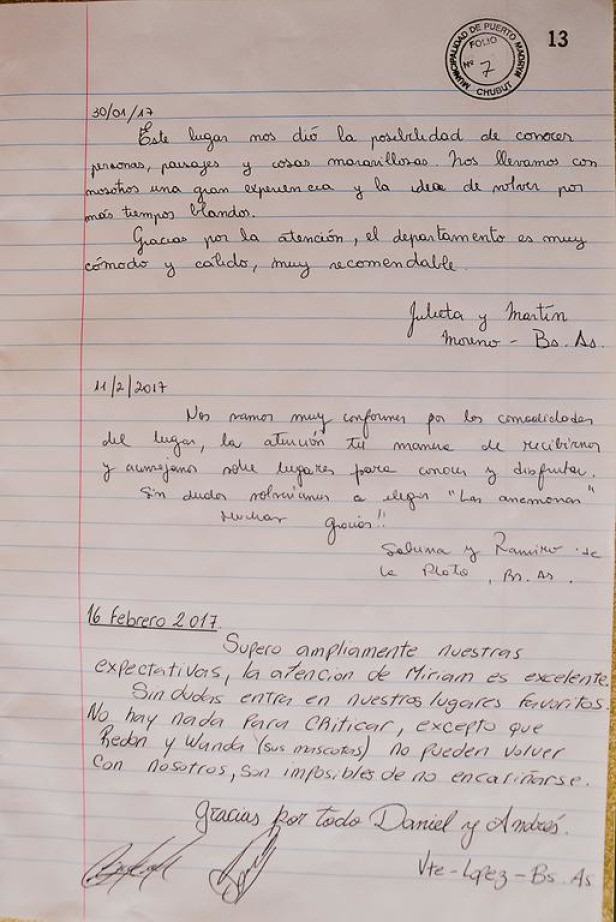 MUNICIPALIDAD DE PUERTO MADRYN
FOLIO
Nº 7
CHUBUT
13
30/01/17
Este lugar nos dió la posibilidad de conocer
personas, paisajes y cosas maravillosas. Nos llevamos con
nosotros una gran experiencia y la idea de volver por
más tiempos blandos.
Gracias por la atención, el departamento es muy
cómodo y cálido, muy recomendable.
Julieta y Martín
Moreno - Bs. As.
11/2/2017
Nos vamos muy conformes por las comodidades
del lugar, la atención tu manera de recibirnos
y aconsejarnos sobre lugares para conocer y disfrutar.
Sin dudas volveríamos a elegir "Las anemonas"
Muchas gracias!!
Sabrina y Ramiro de
La Plata, Bs. As.
16 Febrero 2017.
Supero ampliamente nuestras
expectativas, la atencion de Miriam es excelente.
Sin dudas entra en nuestros lugares favoritos.
No hay nada para criticar, excepto que
y Wanda (sus mascotas) no pueden volver
con nosotros, son imposibles de no encariñarse.
Gracias por todo Daniel y Andrés.
Vte-Lopez-Bs. As